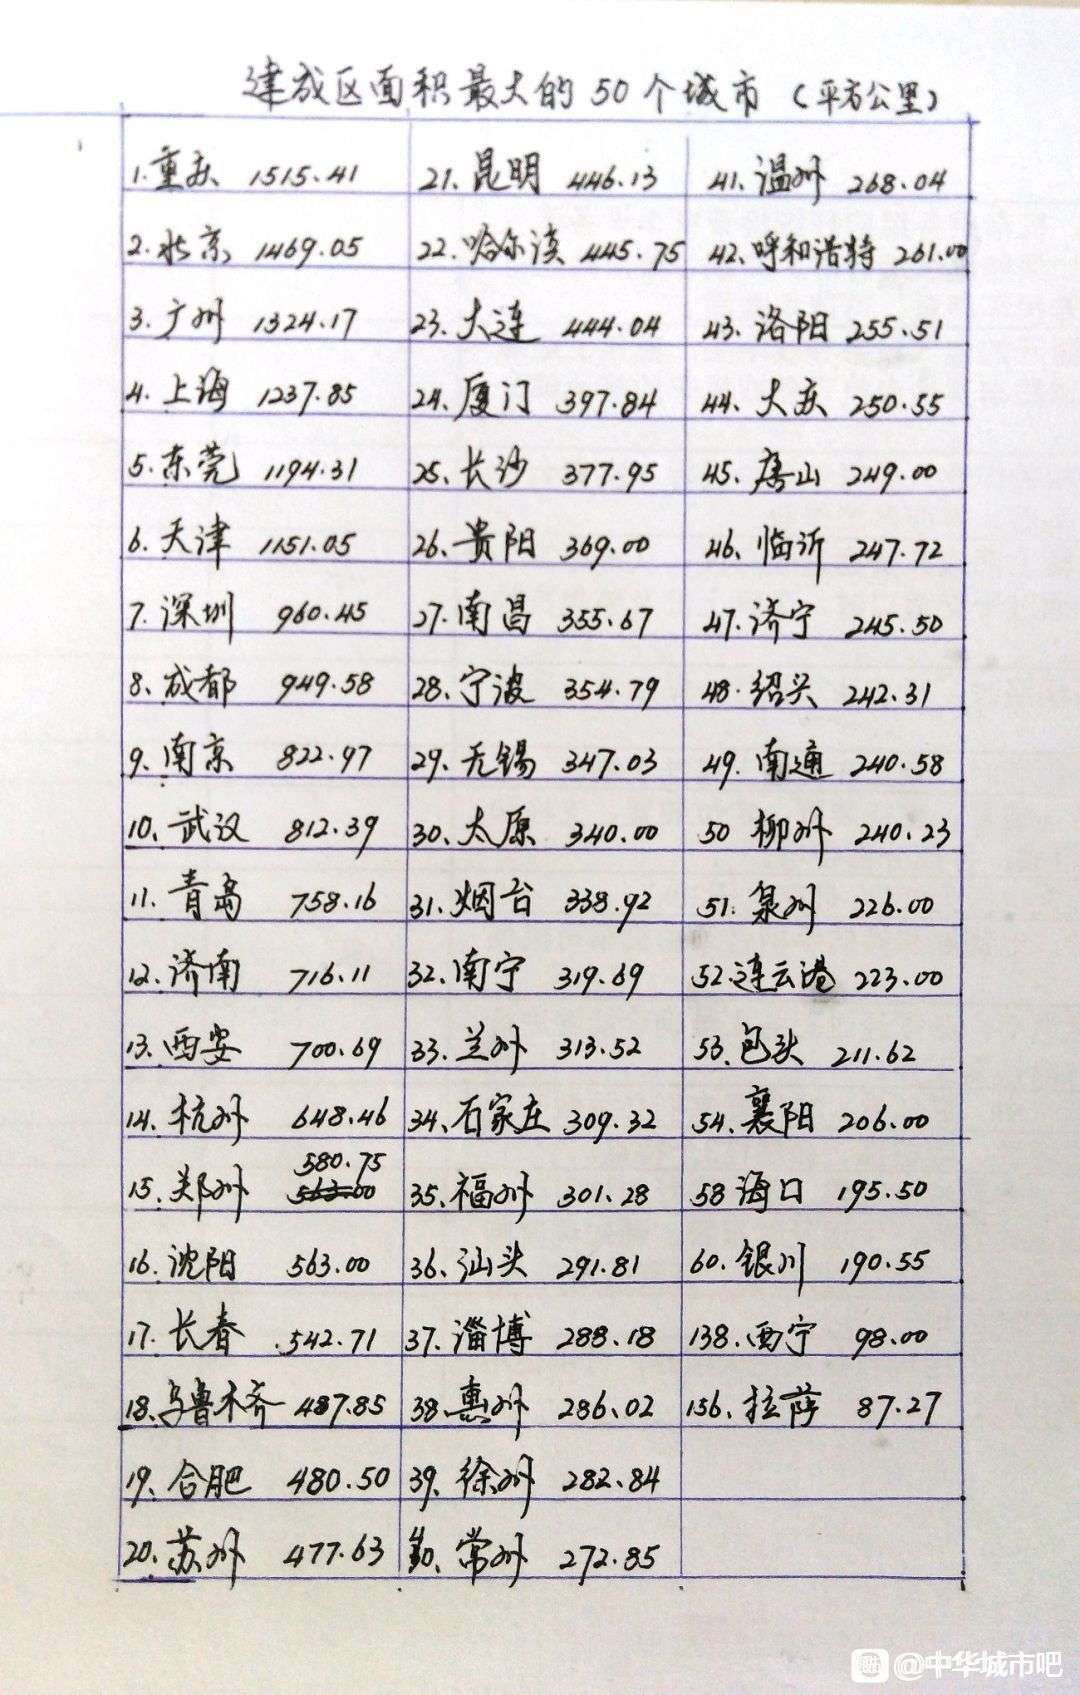 建成区面积最大的50个城市（平方公里）
1.重庆 1515.41
2.北京 1469.05
3.广州 1324.17
4.上海 1237.85
5.东莞 1194.31
6.天津 1151.05
7.深圳 960.45
8.成都 949.58
9.南京 822.97
10.武汉 812.39
11.青岛 758.16
12.济南 716.11
13.西安 700.69
14.杭州 648.46
15.郑州 580.75 563.00
16.沈阳 563.00
17.长春 542.71
18.乌鲁木齐 487.85
19.合肥 480.50
20.苏州 477.63
21.昆明 446.13
22.哈尔滨 445.75
23.大连 444.04
24.厦门 397.84
25.长沙 377.95
26.贵阳 369.00
27.南昌 355.67
28.宁波 354.79
29.无锡 347.03
30.太原 340.00
31.烟台 338.92
32.南宁 319.69
33.兰州 313.52
34.石家庄 309.32
35.福州 301.28
36.汕头 291.81
37.淄博 288.18
38.惠州 286.02
39.徐州 282.84
40.常州 272.85
41.温州 268.04
42.呼和浩特 261.00
43.洛阳 255.51
44.大庆 250.55
45.唐山 249.00
46.临沂 247.72
47.济宁 245.50
48.绍兴 242.31
49.南通 240.58
50 柳州 240.23
51.泉州 226.00
52.连云港 223.00
53.包头 211.62
54.襄阳 206.00
58 海口 195.50
60.银川 190.55
138.西宁 98.00
156.拉萨 87.27
贴 @中华城市吧